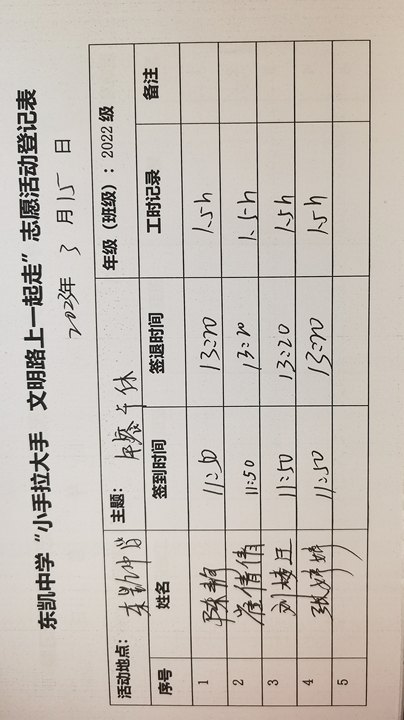 东凯中学“小手拉大手 文明路上一起走”志愿活动登记表
2023年 3 月 15 日
活动地点： 东凯中学 主题： 中餐午休 年级（班级）：2022 级
序号 姓名 签到时间 签退时间 工时记录 备注
1 陈静 11:50 13:20 1.5h
2 崔倩倩 11:50 13:20 1.5h
3 11:50 13:20 1.5h
4 11:50 13:20 1.5h
5